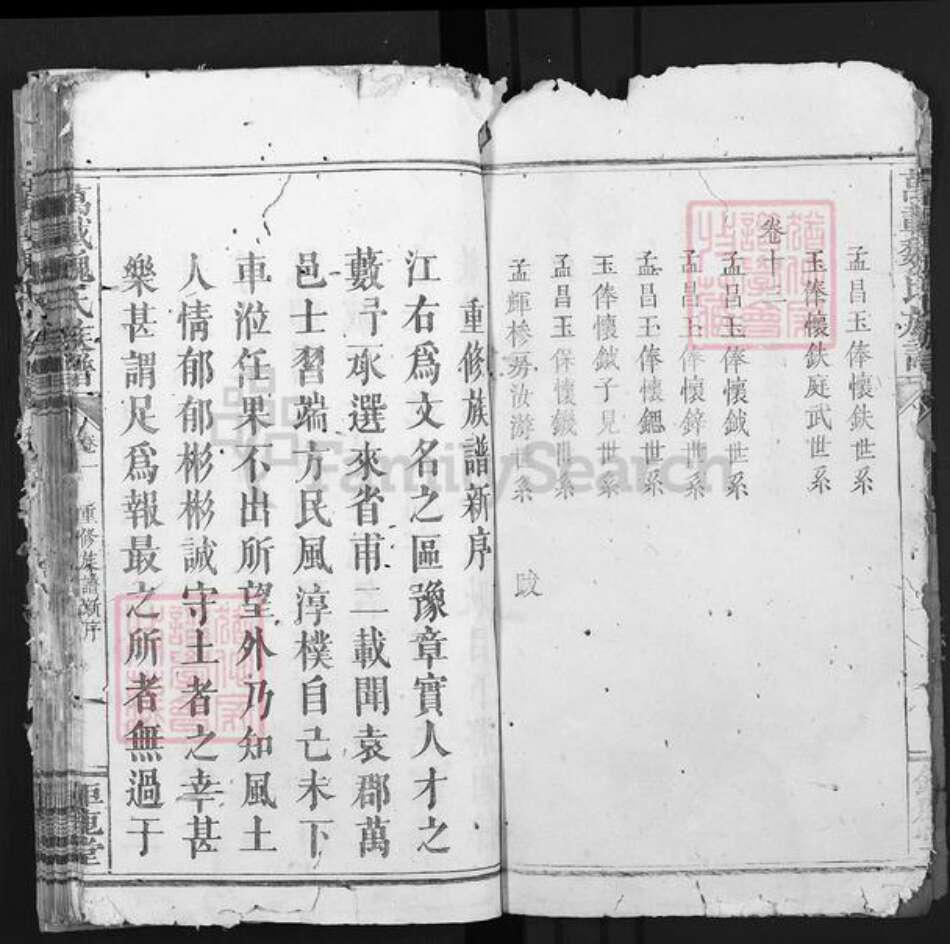 孟昌玉俸懷鈇世系
玉俸懷鈇庭武世系
卷十二
孟昌玉俸懷鉞世系
孟昌玉俸懷鋅世系
孟昌玉俸懷鍶世系
玉俸懷鉞子見世系
孟昌玉保懷鐖世系
孟輝椮昮汝游世系
跋
重修族譜新序
江右爲文名之區豫章實人才之
藪予承選來省甫二載聞袁郡萬
邑士習端方民風淳樸自己未下
車涖任果不出所望外乃知風土
人情郁郁彬彬誠守土者之幸甚
樂甚謂足爲報最之所者無過于
萬載魏氏族譜
卷一
重修族譜新序
鉅鹿堂
FamilySearch